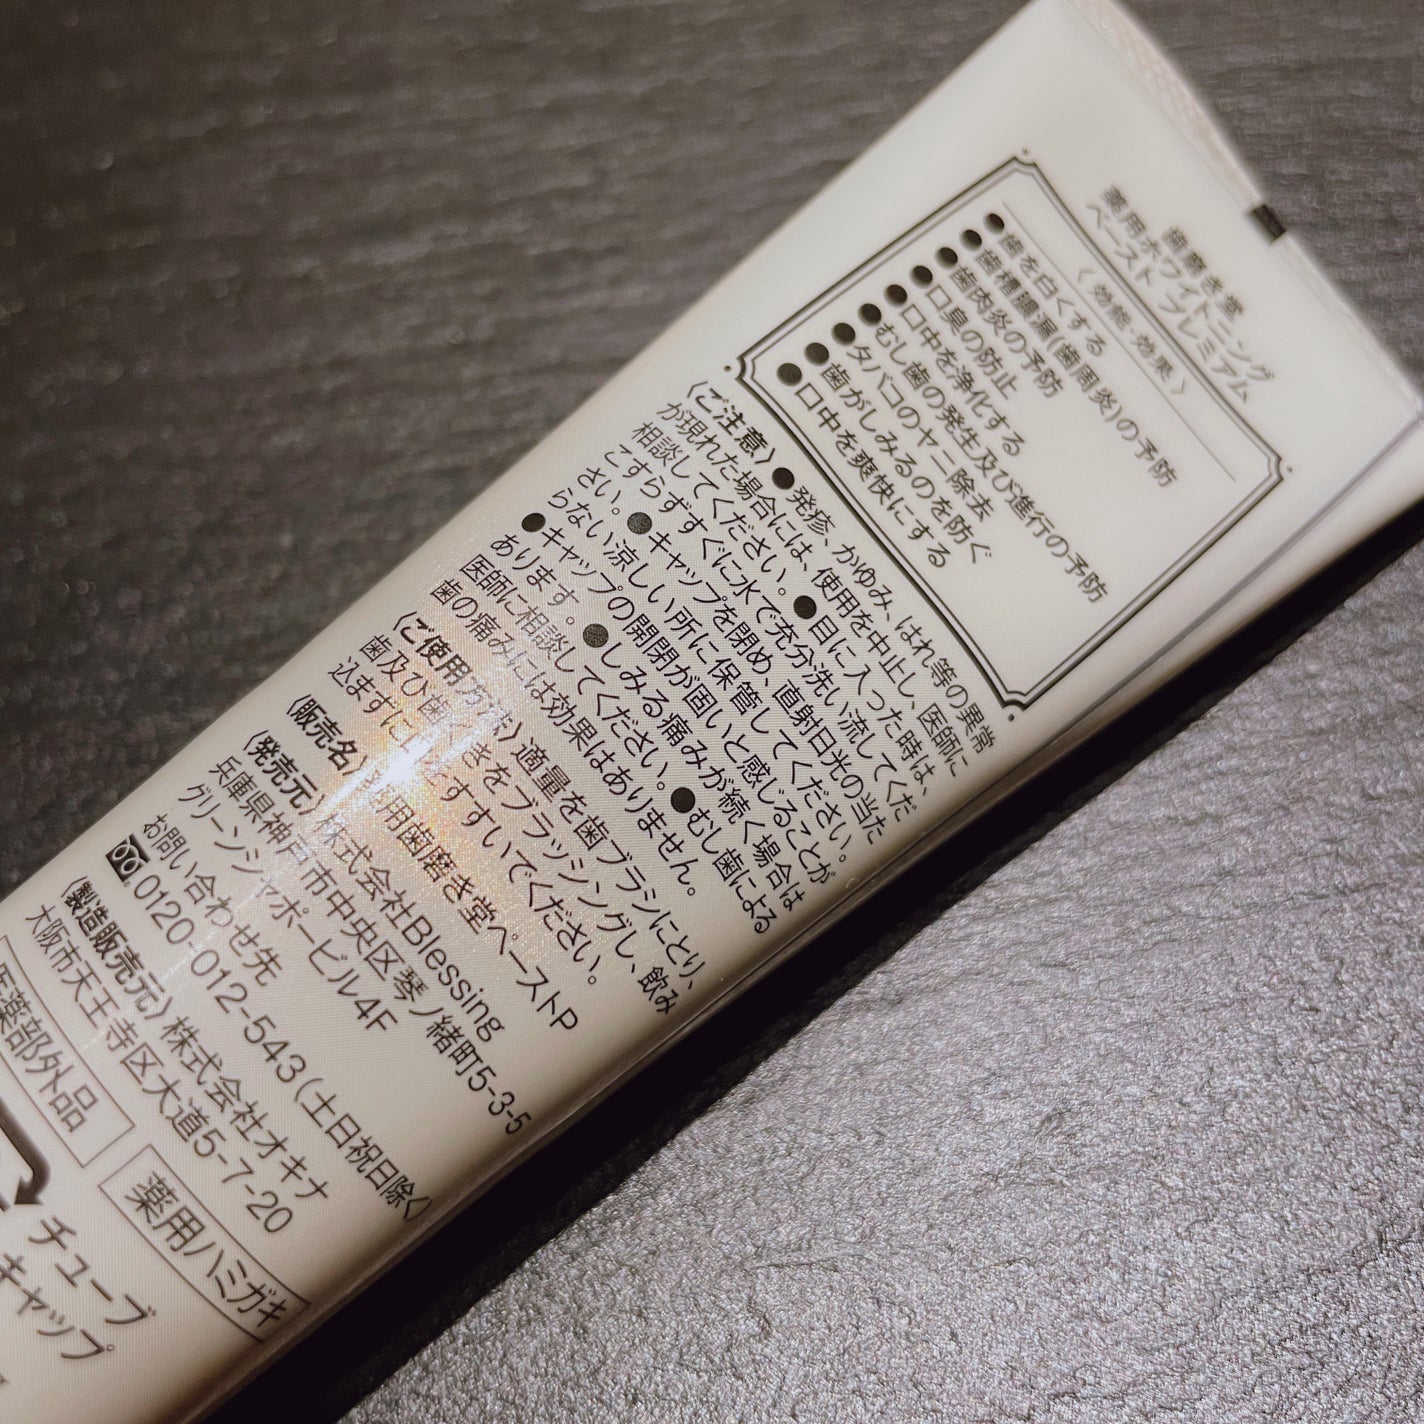 歯磨き堂
薬用ホワイトニング
ペースト プレミアム
〈効能・効果〉
●歯を白くする
●歯槽膿漏(歯周炎)の予防
●歯肉炎の予防
●口臭の防止
●口中を浄化する
●むし歯の発生及び進行の予防
●タバコのヤニ除去
●歯がしみるのを防ぐ
●口中を爽快にする
〈ご注意〉●発疹、かゆみ、はれ等の異常
が現れた場合には、使用を中止し、医師に
相談してください。●目に入った時は、
こすらずすぐに水で充分洗い流してくだ
さい。●キャップを閉め、直射日光の当た
らない涼しい所に保管してください。
●キャップの開閉が固いと感じることが
あります。●しみる痛みが続く場合は
医師に相談してください。●むし歯による
歯の痛みには効果はありません。
〈ご使用方法〉適量を歯ブラシにとり、
歯及び歯ぐきをブラッシングし、飲み
込まずに口をすすいでください。
〈販売名〉薬用歯磨き堂ペーストP
〈発売元〉株式会社Blessing
兵庫県神戸市中央区琴ノ緒町5-3-5
グリーンシャポービル4F
お問い合わせ先
0120-012-543(土日祝日除く)
〈製造販売元〉株式会社オキナ
大阪市天王寺区大道5-7-20
医薬部外品
薬用ハミガキ
チューブ
キャップ